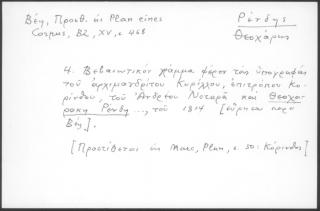 Βέη, Προσθ. εἰς Plan eines
Corpus, BZ, XV, σ. 468
Ρένδης
Θεοχάρης
4. Βεβαιωτικὸν γράμμα φέρον τὰς ὑπογραφὰς
τοῦ ἀρχιμανδρίτου Κυρίλλου, ἐπιτρόπου Κο-
ρίνθου, τοῦ Ἀνδρέου Νοταρᾶ καὶ Θεοχα-
ράκη Ρένδη ..., τοῦ 1814. [εὕρηται παρὰ
Βέῃ].
[Προστίθεται εἰς Marc, Plan, σ. 50: Κόρινθος]